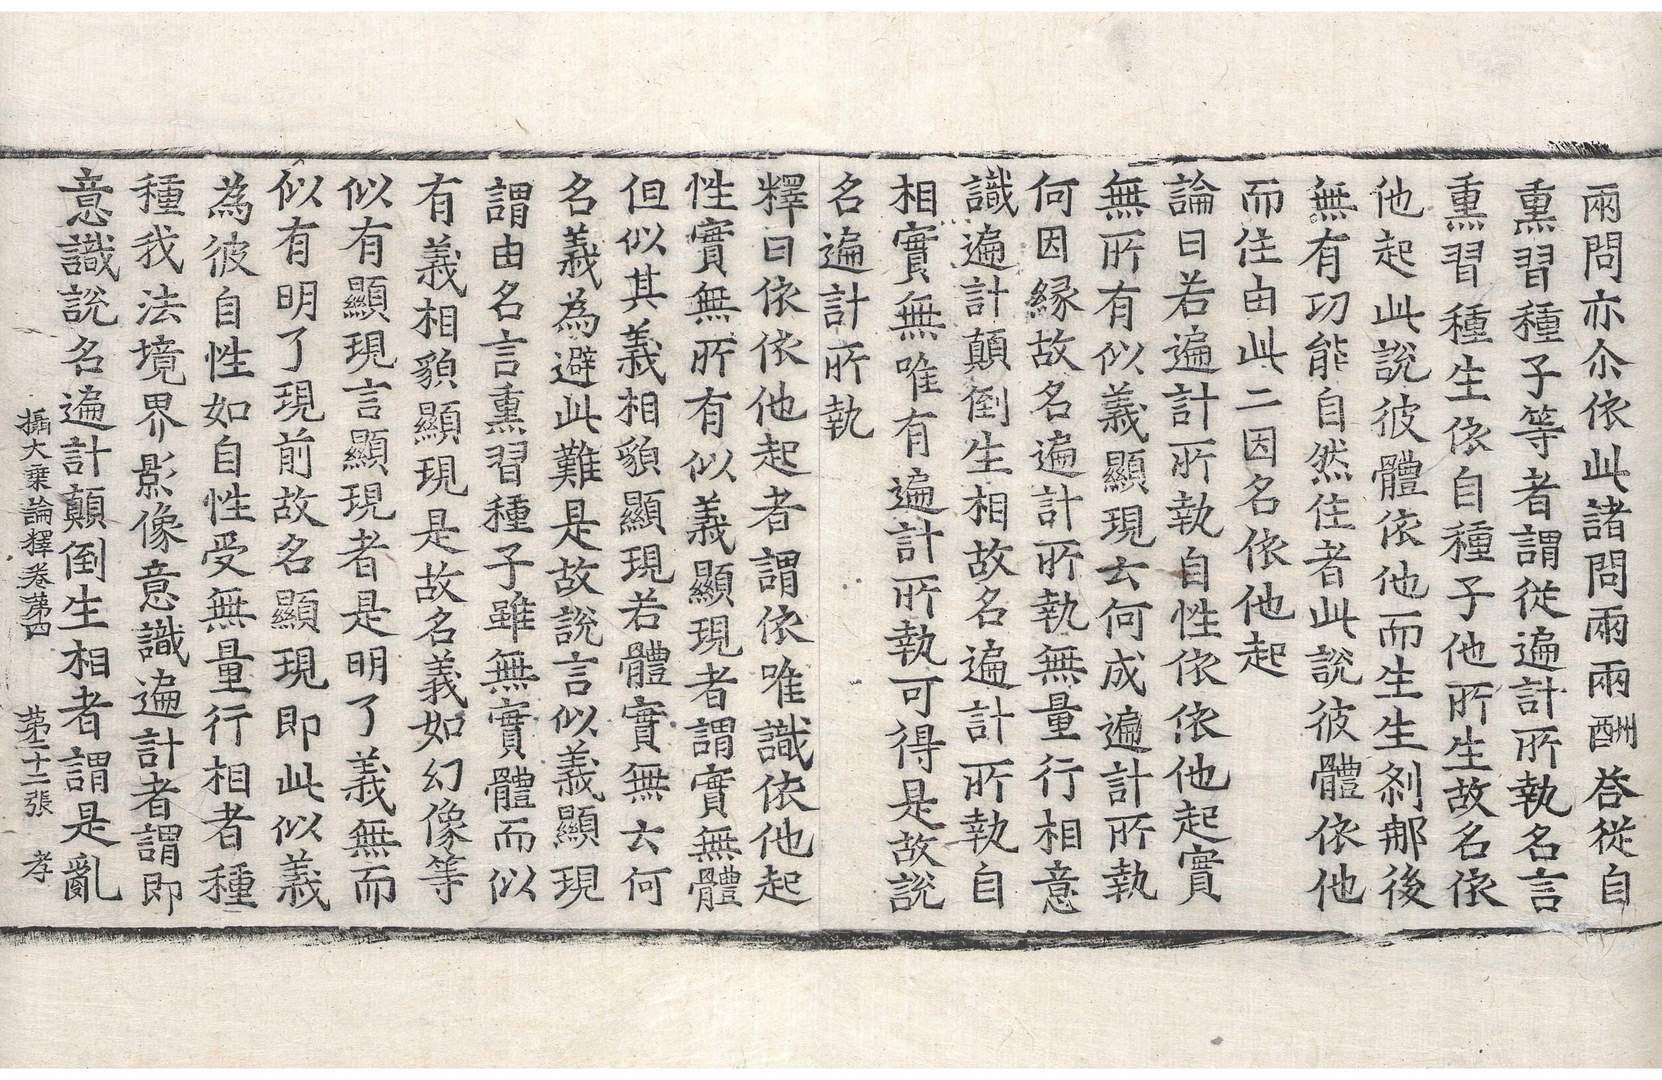 兩問亦尒依此諸問兩兩酬荅從自
熏習種子等者謂從遍計所執名言
熏習種生依自種子他所生故名依
他起此說彼體依他而生生剎那後
無有功能自然住者此說彼體依他
而住由此二因名依他起
論曰若遍計所執自性依依他起實
無所有似義顯現云何成遍計所執
何因緣故名遍計所執無量行相意
識遍計顛倒生相故名遍計所執自
相實無唯有遍計所執可得是故說
名遍計所執
釋曰依依他起者謂依唯識依他起
性實無所有似義顯現者謂實無體
但似其義相貌顯現若體實無云何
名義為避此難是故說言似義顯現
謂由名言熏習種子雖無實體而似
有義相貌顯現是故名義如幻像等
似有顯現言顯現者是明了義無而
似有明了現前故名顯現即此似義
為彼自性如自性受無量行相者種
種我法境界影像意識遍計者謂即
意識說名遍計顛倒生相者謂是亂
攝大乘論釋卷第四 第二十二張 孝